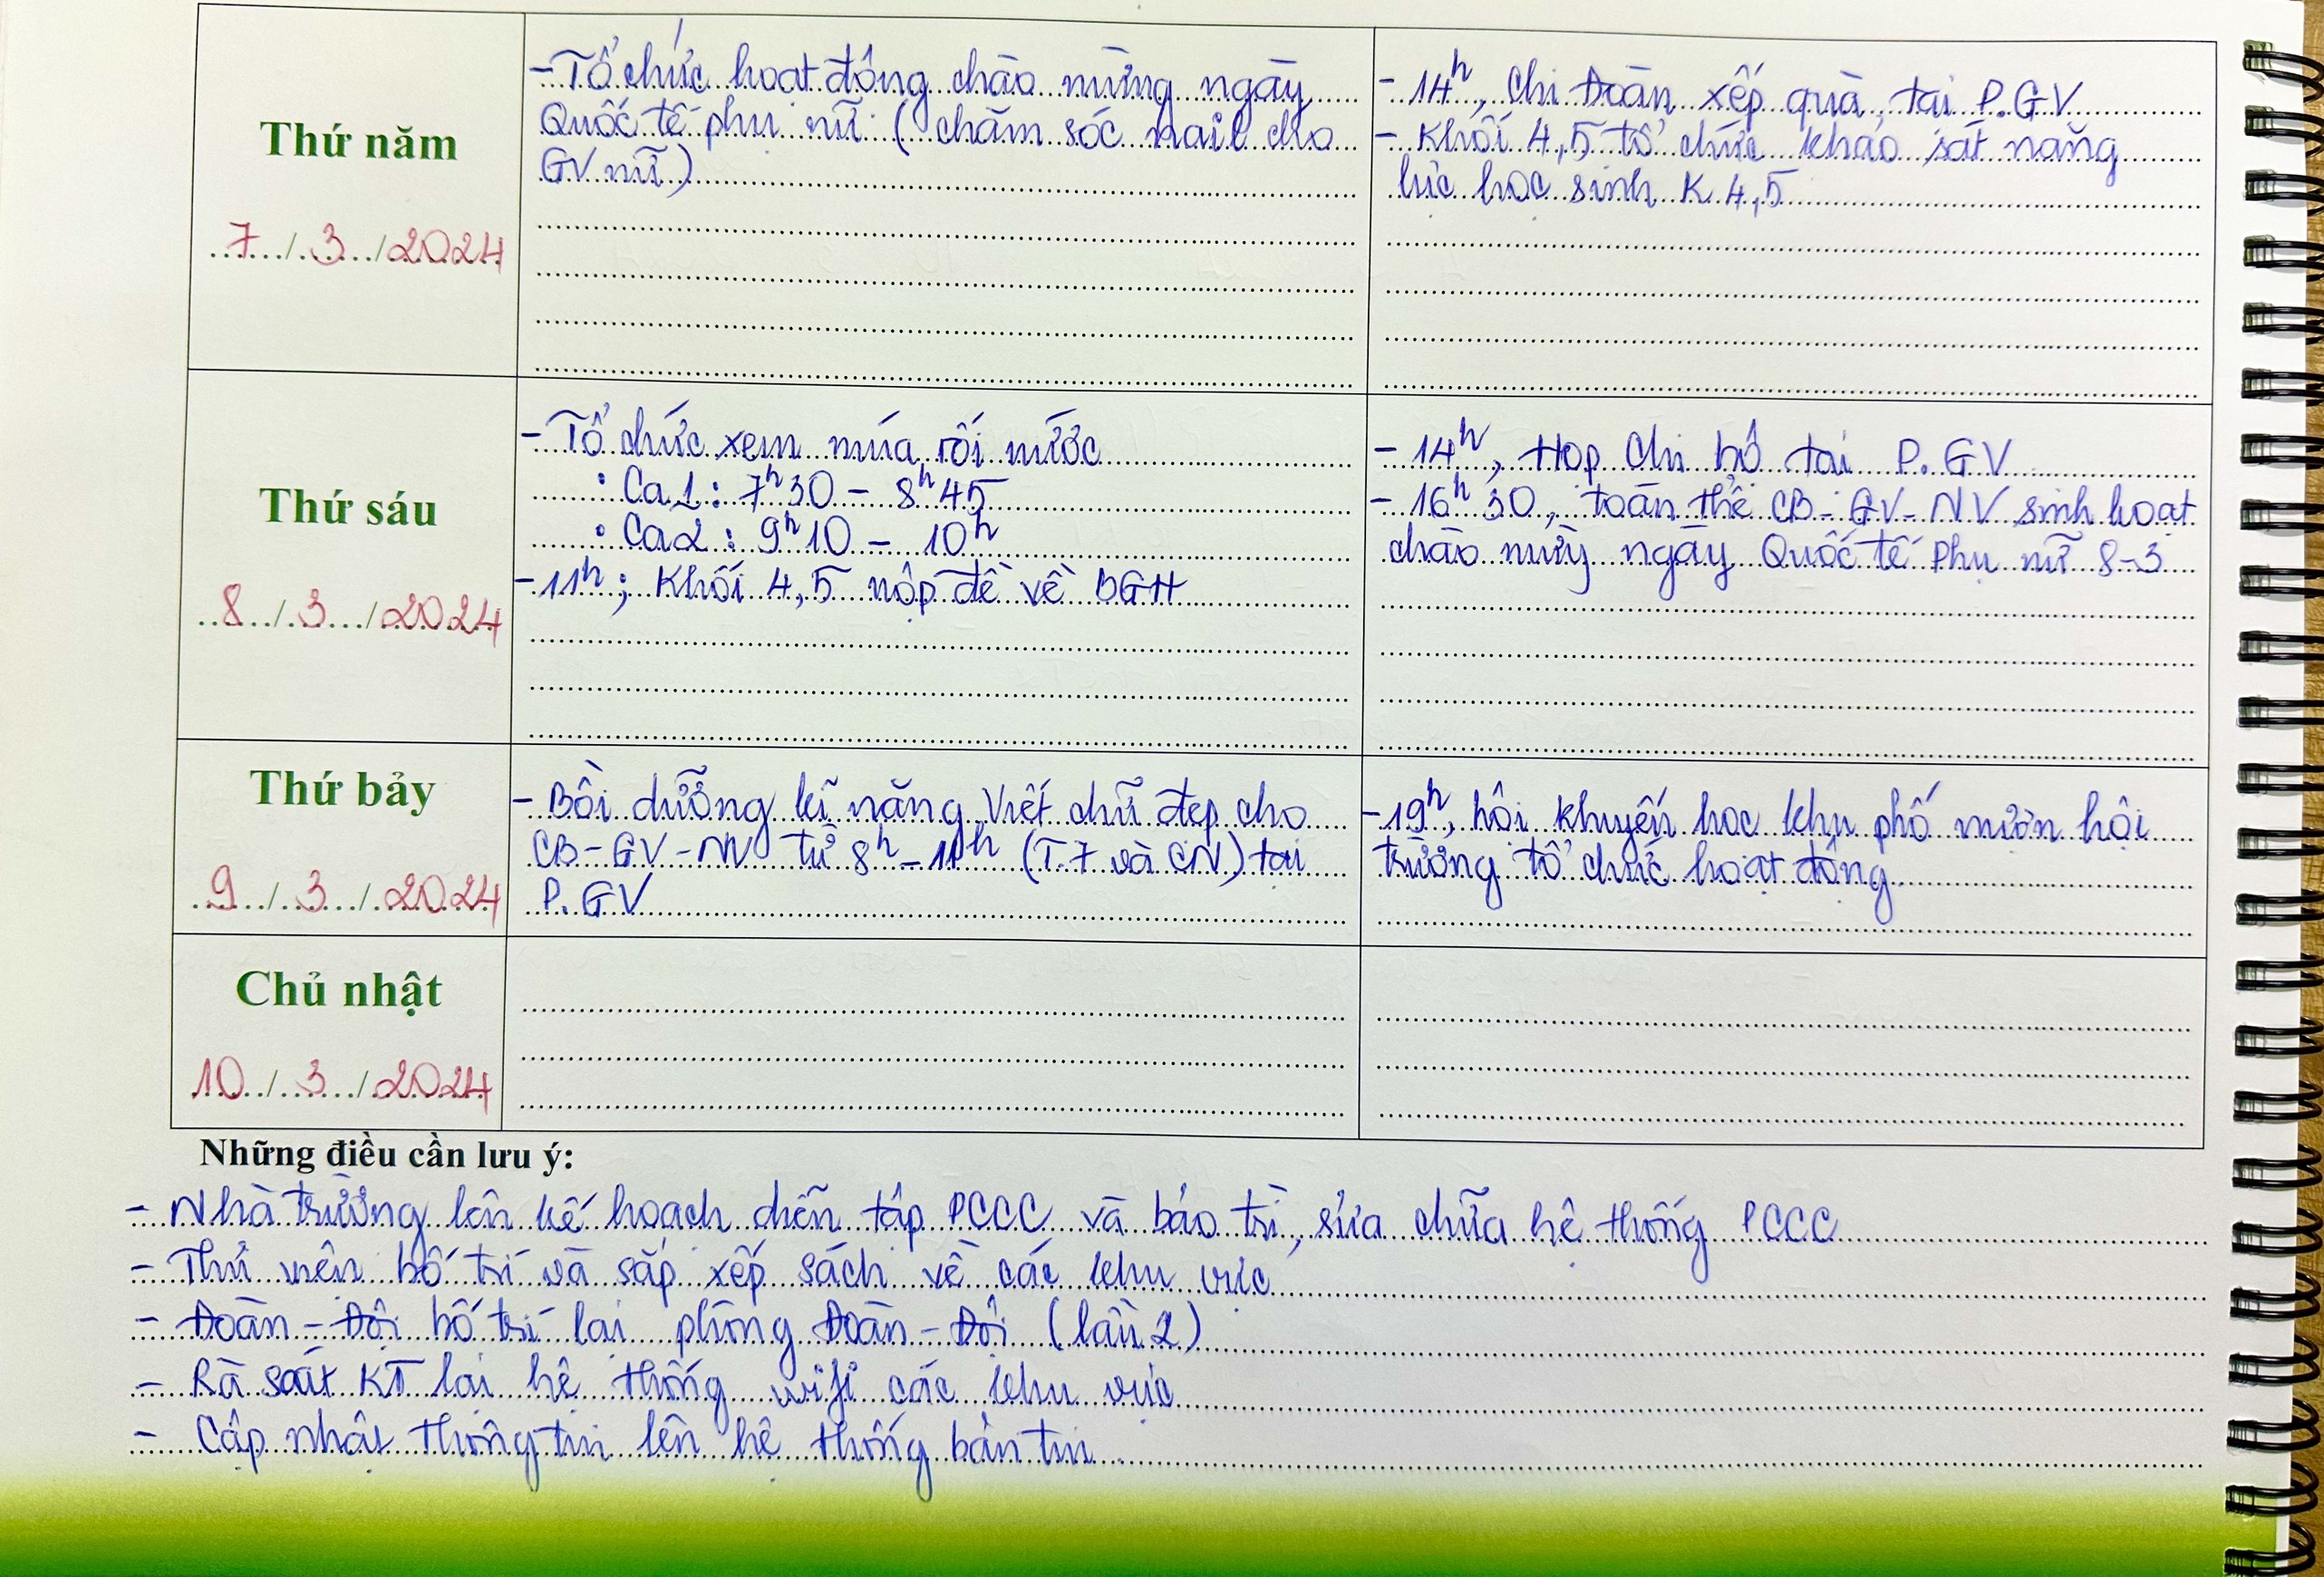 Thứ năm
7/3/2024
- Tổ chức hoạt động chào mừng ngày
Quốc tế phụ nữ (chăm sóc nail cho
GV nữ)
- 14h, Chi Đoàn xếp quà tại P.GV
- Khối 4,5 tổ chức khảo sát năng
lực học sinh K 4,5
Thứ sáu
8/3/2024
- Tổ chức xem múa rối nước
• Ca 1: 7h30 - 8h45
• Ca 2: 9h10 - 10h
- 11h; Khối 4,5 nộp đề về BGH
- 14h, Họp Chi bộ tại P.GV
- 16h30, toàn thể CB-GV-NV sinh hoạt
chào mừng ngày Quốc tế Phụ nữ 8-3
Thứ bảy
9/3/2024
- Bồi dưỡng kĩ năng Viết chữ đẹp cho
CB-GV-NV từ 8h-11h (T.7 và CN) tại
P.GV
- 19h, hội khuyến học khu phố mượn hội
trường tổ chức hoạt động
Chủ nhật
10/3/2024
Những điều cần lưu ý:
- Nhà trường lên kế hoạch diễn tập PCCC và bảo trì, sửa chữa hệ thống PCCC
- Thư viện bố trí và sắp xếp sách về các khu vực
- Đoàn - Đội bố trí lại phòng Đoàn - Đội (lần 2)
- Rà soát KT lại hệ thống wifi các khu vực
- Cập nhật thông tin lên hệ thống bản tin